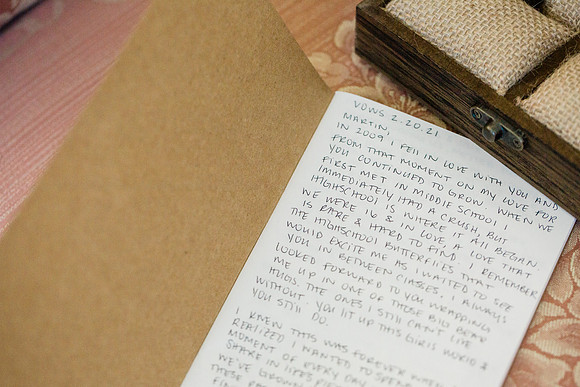 VOWS 2.20.21
MARTIN,
IN 2009 I FELL IN LOVE WITH YOU AND
FROM THAT MOMENT ON MY LOVE FOR
YOU CONTINUED TO GROW. WHEN WE
FIRST MET IN MIDDLE SCHOOL I
IMMEDIATELY HAD A CRUSH, BUT
HIGHSCHOOL IS WHERE IT ALL BEGAN.
WE WERE 16 & IN LOVE, A LOVE THAT
IS RARE & HARD TO FIND. I REMEMBER
THE HIGHSCHOOL BUTTERFLIES THAT
WOULD EXCITE ME AS I WAITED TO SEE
YOU IN BETWEEN CLASSES. I ALWAYS
LOOKED FORWARD TO YOU WRAPPING
ME UP IN ONE OF THOSE BIG BEAR
HUGS. THE ONES I STILL CAN'T LIVE
WITHOUT. YOU LIT UP THIS GIRLS WORLD &
YOU STILL DO.
I KNEW THIS WAS FOREVER
REALIZED I WANTED TO
MOMENT OF EVERY DAY
SHARE IN LIFE'S
WE'VE
THESE